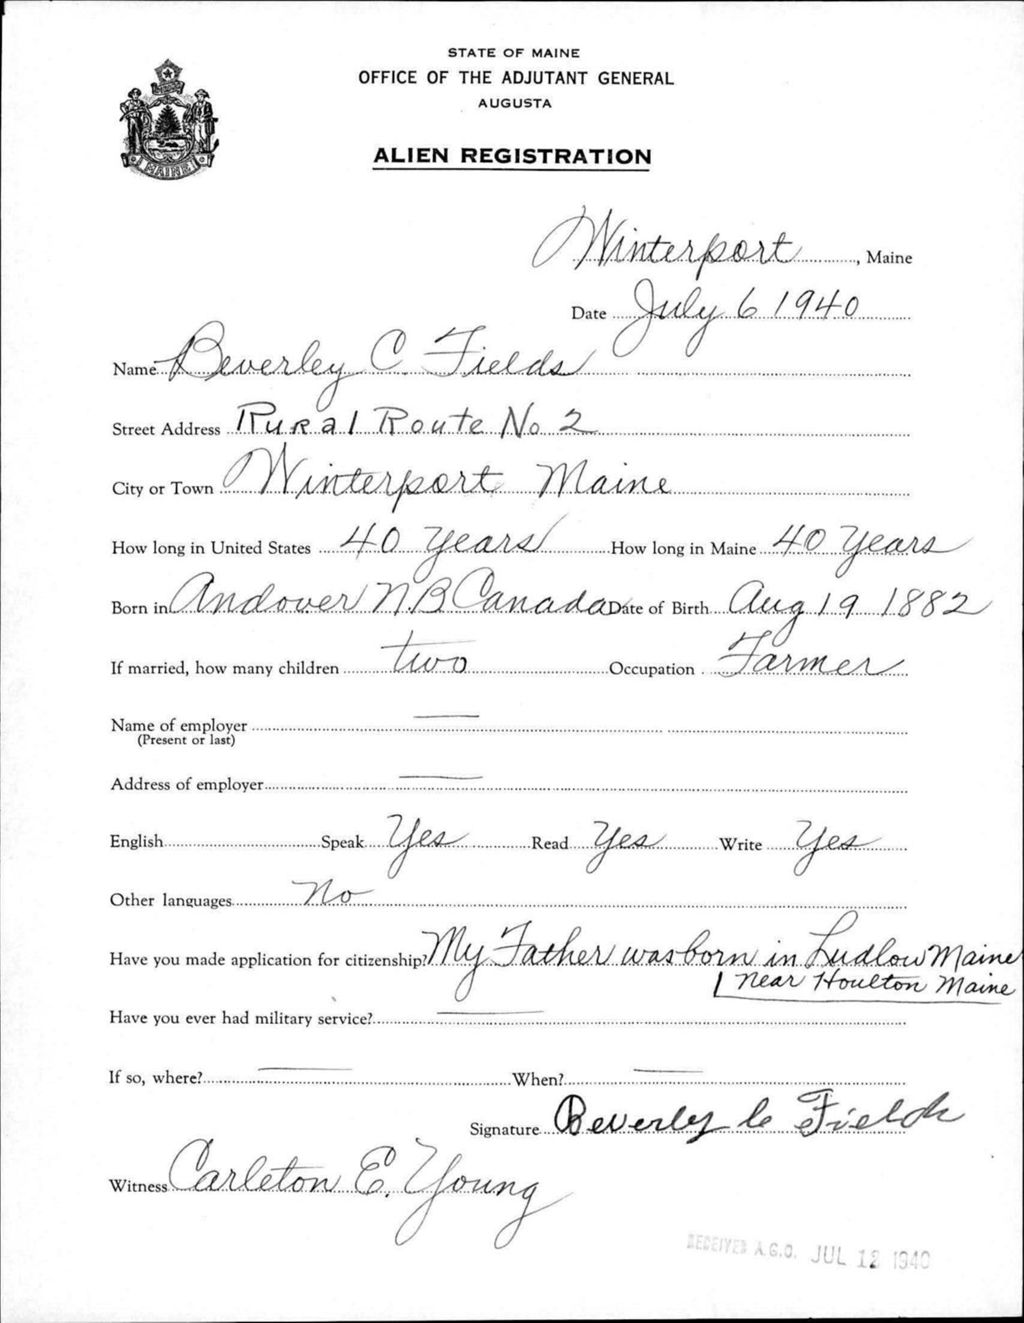 STATE OF MAINE
OFFICE OF THE ADJUTANT GENERAL
AUGUSTA
ALIEN REGISTRATION
MAINE
Winterport, Maine
Date July 6 1940
Name Beverley C. Fields
Street Address Rural Route No 2
City or Town Winterport Maine
How long in United States 40 years How long in Maine 40 years
Born in Andover N B Canada Date of Birth Aug 19 1882
If married, how many children two Occupation Farmer
Name of employer
(Present or last)
Address of employer
English Speak Yes Read Yes Write Yes
Other languages No
Have you made application for citizenship? My Father was born in Ludlow Maine
near Houlton Maine
Have you ever had military service?
If so, where? When?
Signature Beverley C Fields
Witness Carleton E. Young
RECEIVED A.G.O. JUL 12 1940